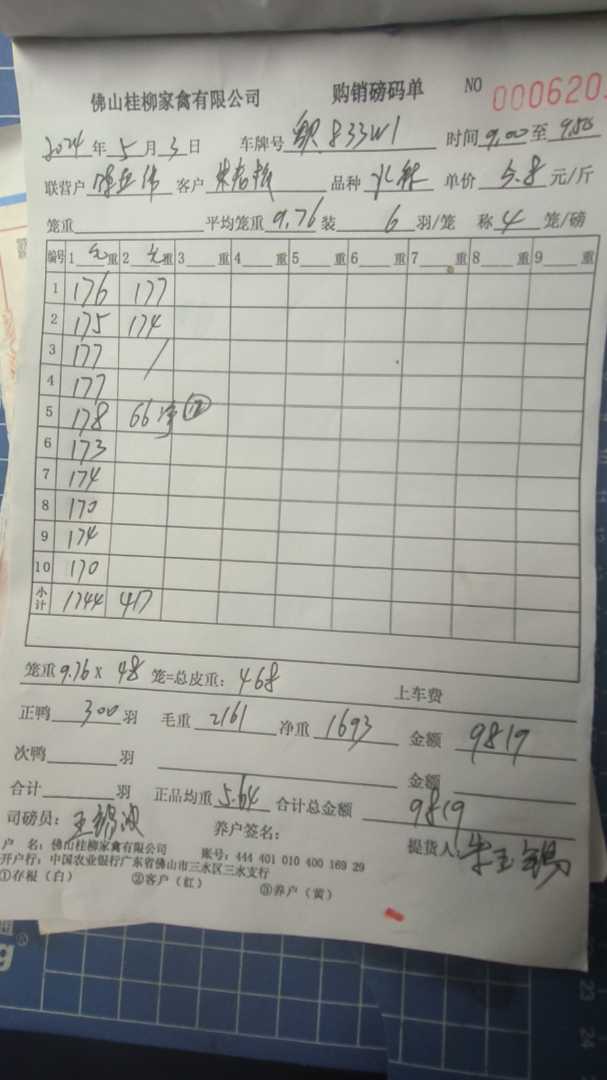 佛山桂柳家禽有限公司 购销磅码单 NO 000620
2024年5月3日 车牌号 833W1 时间9,00至9,50
联营户 客户 品种 单价5.8元/斤
笼重 平均笼重9.76装6羽/笼 称4笼/磅
编号 1 毛重 2 毛重 3 重 4 重 5 重 6 重 7 重 8 重 9 重
1 176 177
2 175 174
3 177 /
4 177
5 178 66净 ⑫
6 173
7 174
8 170
9 174
10 170
小计 1744 417
笼重9.76×48笼=总皮重:468 上车费
正鸭300羽 毛重2161 净重1693 金额9819
次鸭 羽 金额
合计 羽 正品均重5.64 合计总金额9819
司磅员: 养户签名: 提货人:
户 名:佛山桂柳家禽有限公司 账号:444 401 010 400 169 29
开户行:中国农业银行广东省佛山市三水区三水支行
①存根(白) ②客户(红) ③养户(黄)